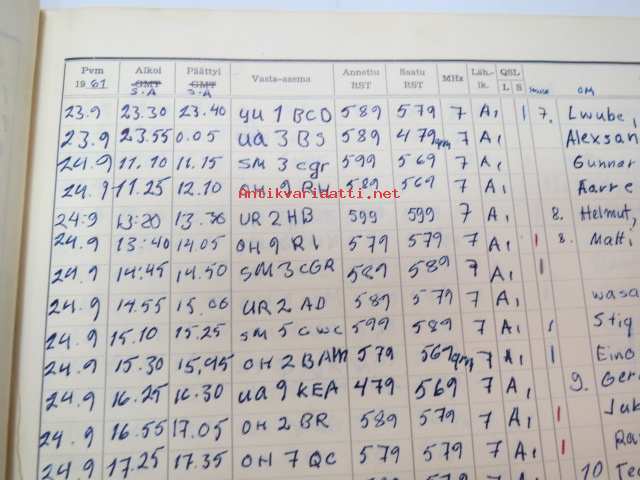 Pvm Alkoi Päättyi Vasta-asema Annettu Saatu MHz Läh.- QSL
1961 GMT GMT RST RST lk. L S OM
S.A S.A
23.9 23.30 23.40 YU 1 BCD 589 579 7 A1 1 7. Lwube,
23.9 23.55 0.05 UA 3 BS 589 479 7 A1 Alexsan
24.9 11.10 11.15 SM 3 cgr 599 569 7 A1 Gunnar
24.9 11.25 12.10 OH 9 RH 589 569 7 A1 Aarre
Antikvariaatti.net
24.9 13:20 13.30 UR 2 HB 599 599 7 A1 8. Helmut,
24.9 13:40 14.05 OH 9 RI 579 579 7 A1 1 8. Matti
24.9 14:45 14.50 SM 3 CGR 589 589 7 A1 1
24.9 14.55 15.00 UR 2 AD 589 579 7 A1 wasa
24.9 15.10 15.25 SM 5 CWC 599 589 7 A1 1 Stig
24.9 15.30 15.45 OH 2 BAM 579 569 7 A1 1 Eino
24.9 16.25 16.30 UA 9 KEA 479 569 7 A1 9. Ger
24.9 16.55 17.05 OH 2 BR 589 579 7 A1 1
24.9 17.25 17.35 OH 7 QC 579 579 7 A1 1
10